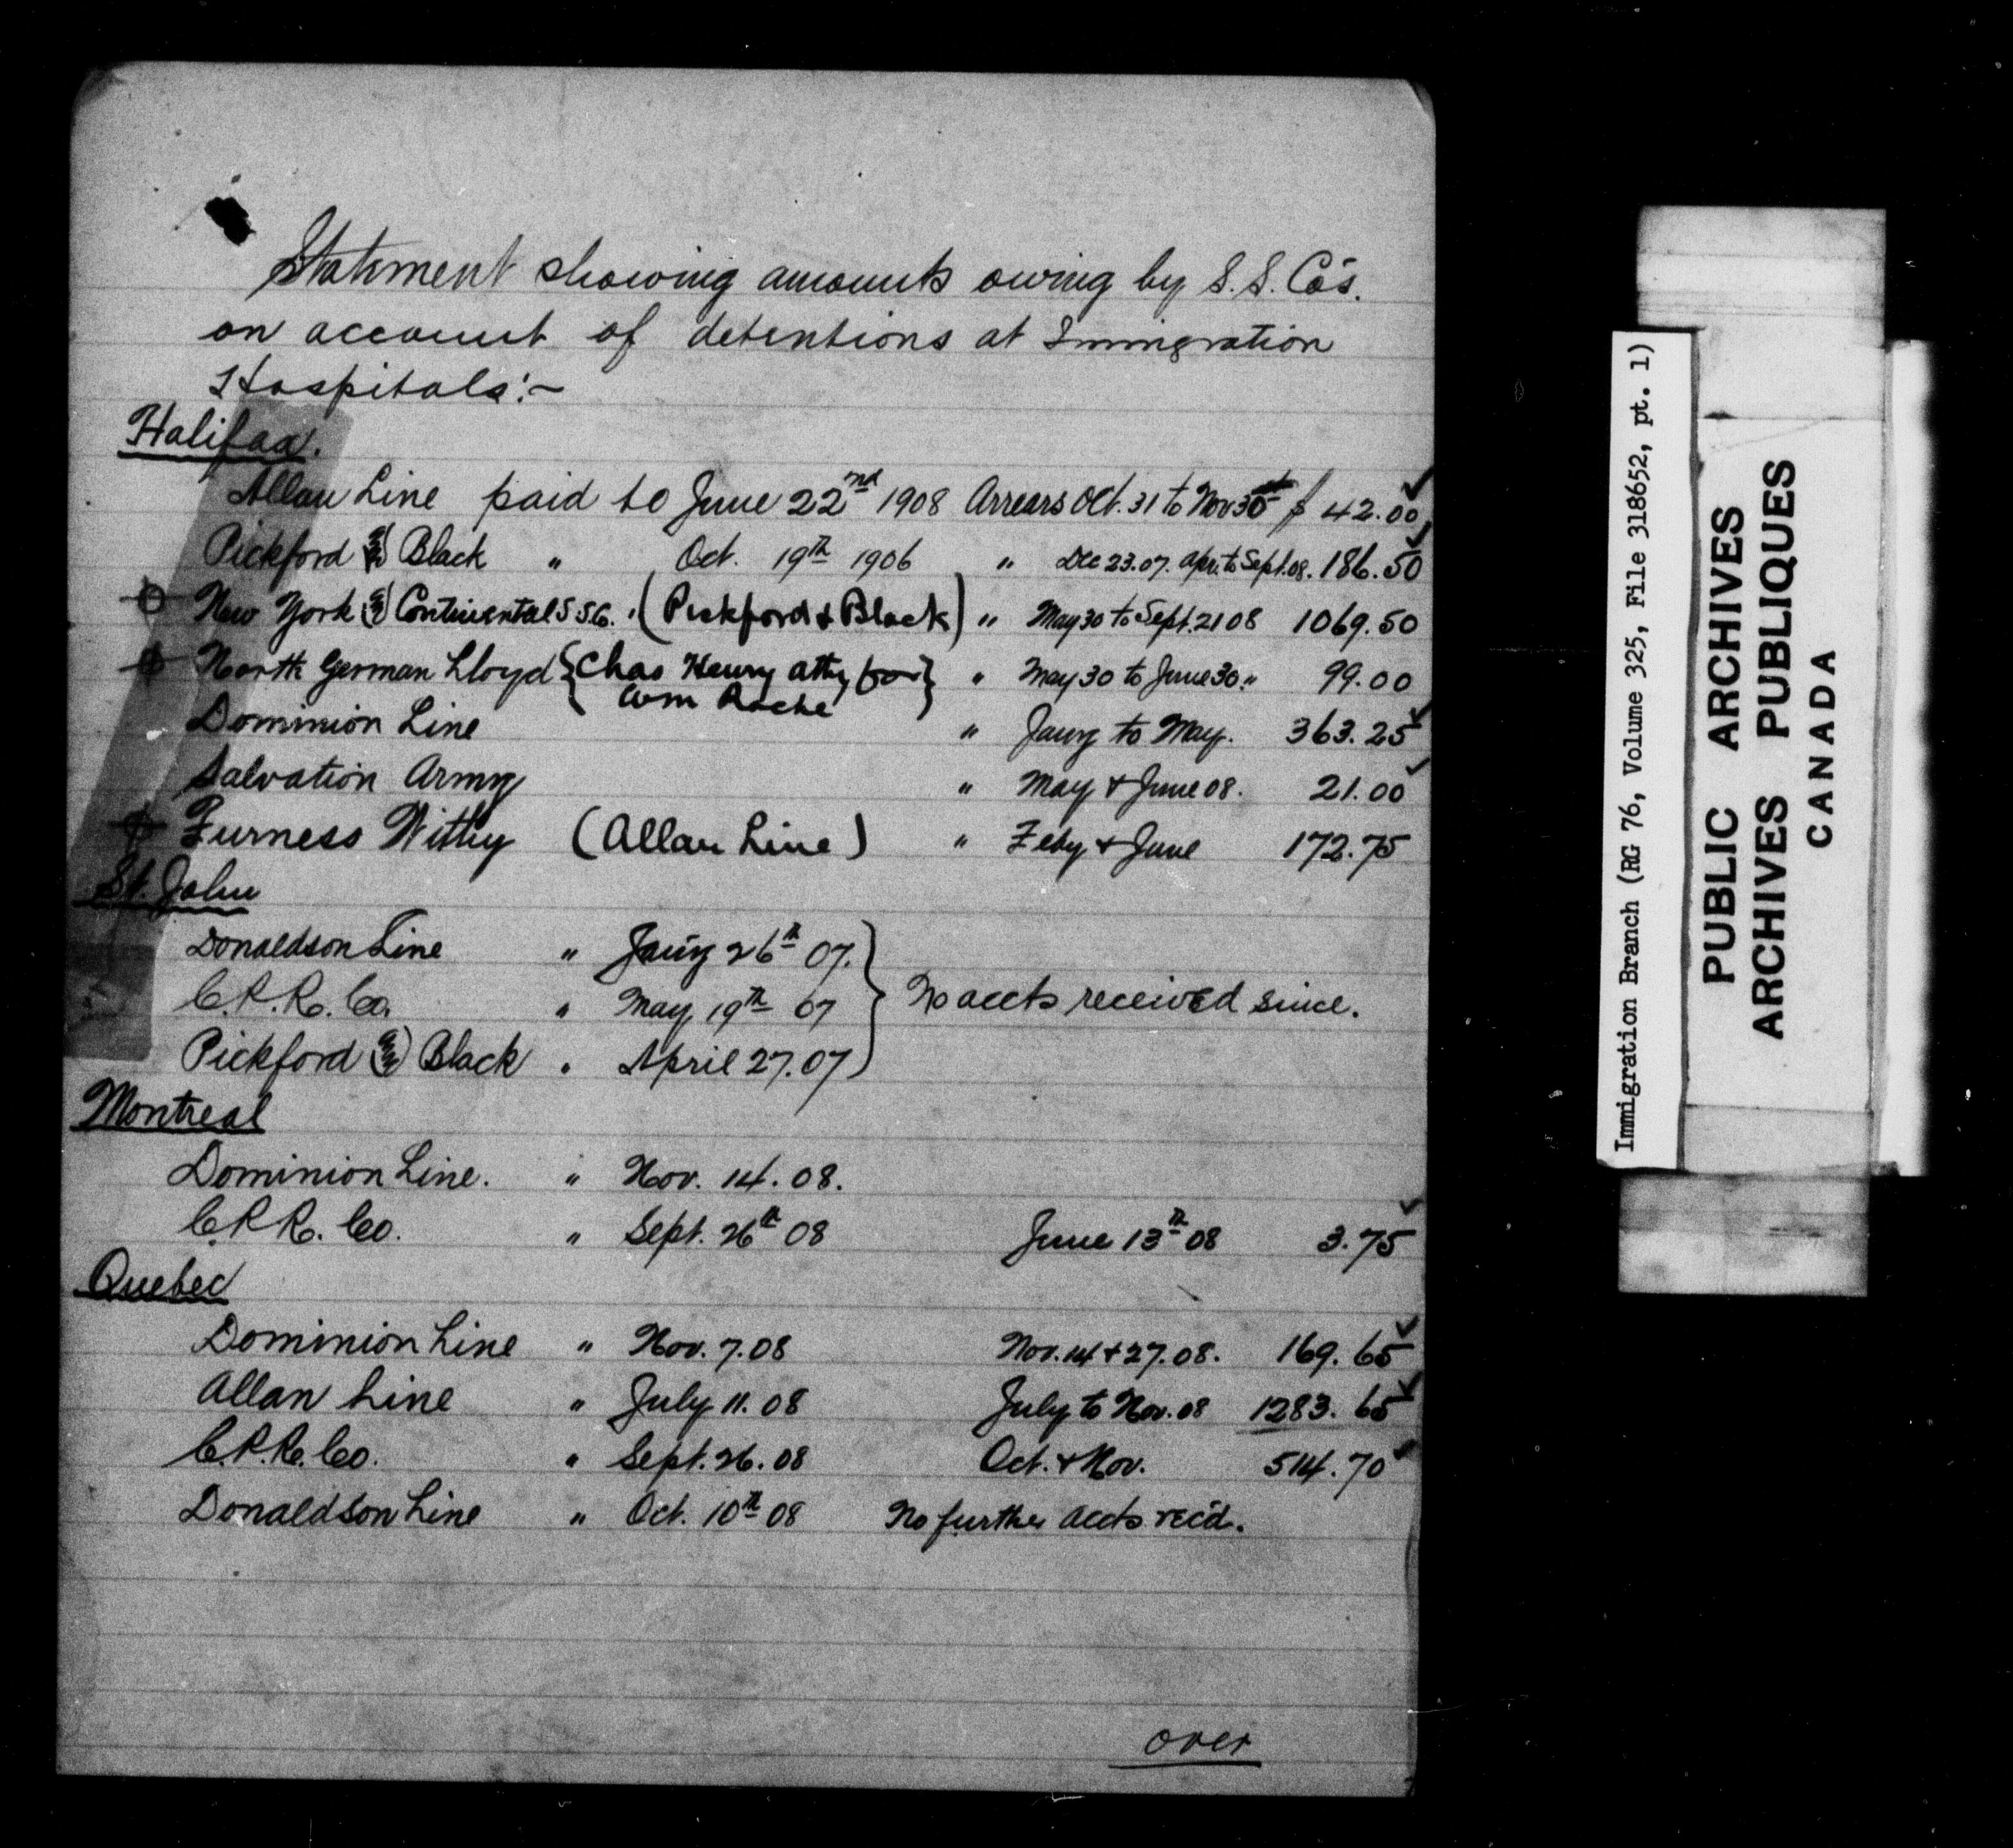 Statement showing amounts owing by S.S. Co's.
on account of detentions at Immigration
Hospitals:-
Halifax.
Allan Line paid to June 22nd 1908 Arrears Oct. 31 to Nov 30 $ 42.00
Pickford & Black " Oct. 19th 1906 " Dec 23.07. Apr. to Sept. 08. 186.50
New York & Continental S S Co. (Pickford & Black) " May 30 to Sept. 21 08 1069.50
North German Lloyd {Chas Henry atty for} " May 30 to June 30 " 99.00
Wm Roche
Dominion Line " Jany to May. 363.25
Salvation Army " May & June 08. 21.00
Furness Withy (Allan Line) " Feby & June 172.75
St. John
Donaldson Line " Jany 26th 07.
C.P.R. Co. " May 19th 07 } No accts received since.
Pickford & Black " April 27.07
Montreal
Dominion Line. " Nov. 14. 08.
C.P.R. Co. " Sept. 26th 08 June 13th 08 3.75
Quebec
Dominion Line " Nov. 7. 08 Nov. 14 & 27. 08. 169.65
Allan Line " July 11. 08 July to Nov. 08 1283.65
C.P.R. Co. " Sept. 26. 08 Oct. & Nov. 514.70
Donaldson Line " Oct. 10th 08 No further accts rec'd.
over
Immigration Branch (RG 76, Volume 325, File 318652, pt. 1)
PUBLIC ARCHIVES
ARCHIVES PUBLIQUES
CANADA